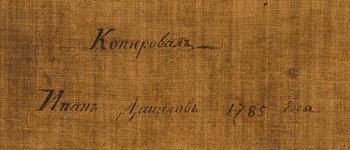 Копировалъ
Иванъ Даниловъ 1785 года